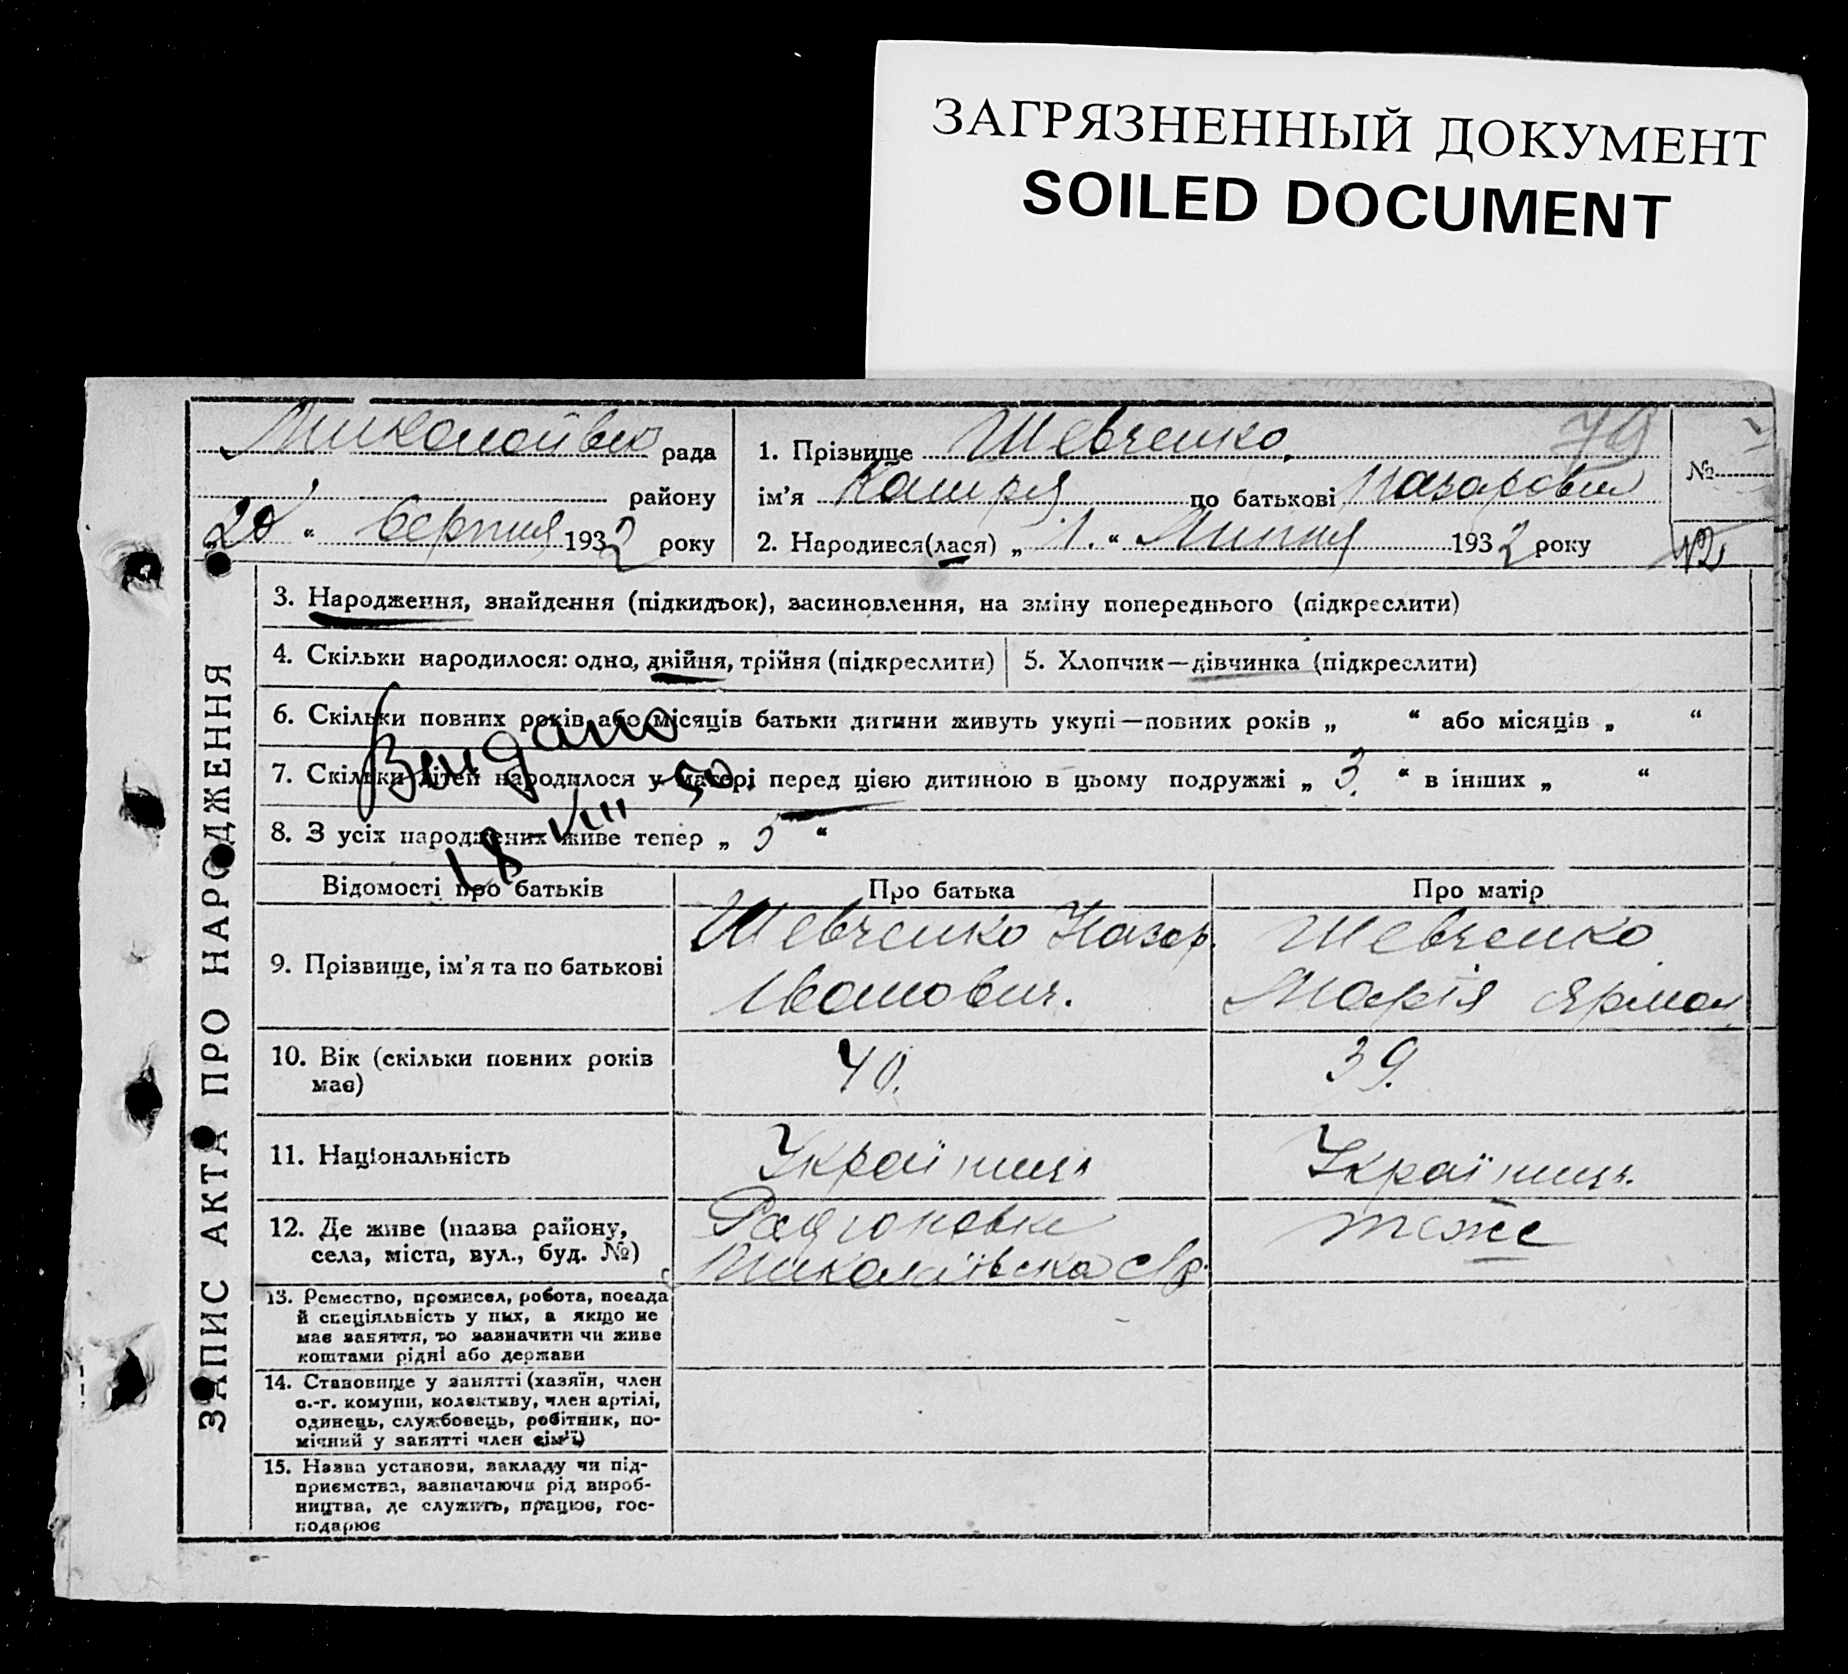 ЗАГРЯЗНЕННЫЙ ДОКУМЕНТ
SOILED DOCUMENT
рада
району
20 " Серпня 1932 року
1. Прізвище Шевченко.
79
ім'я по батькові Назаровна
2. Народився(лася) „ 1. " Липня 1932 року
№
42
ЗАПИС АКТА ПРО НАРОДЖЕННЯ
3. Народження, знайдення (підкидьок), засиновлення, на зміну попереднього (підкреслити)
4. Скільки народилося: одно, двійня, трійня (підкреслити)
5. Хлопчик—дівчинка (підкреслити)
6. Скільки повних років або місяців батьки дитини живуть укупі—повних років „ " або місяців „ "
7. Скільки дітей народилося у матері перед цією дитиною в цьому подружжі „ 3. " в інших „ "
8. З усіх народжених живе тепер „ 5 "
Видано
18 VIII 50.
Відомості про батьків
Про батька
Про матір
9. Прізвище, ім'я та по батькові
Шевченко Назар.
Іванович.
Шевченко
Марія
10. Вік (скільки повних років
має)
40.
39.
11. Національність
Українць
Українць.
12. Де живе (назва району,
села, міста, вул., буд. №)
Миколаївська с/р.
теже
13. Ремество, промисел, робота, посада
й спеціяльність у них, а якщо не
має заняття, то зазначити чи живе
коштами рідні або держави
14. Становище у занятті (хазяїн, член
с.-г. комуни, колективу, член артілі,
одинець, службовець, робітник, по-
мічний у занятті член сім'ї)
15. Назва установи, закладу чи під-
приємства, зазначаючи рід вироб-
ництва, де служить, працює, гос-
подарює